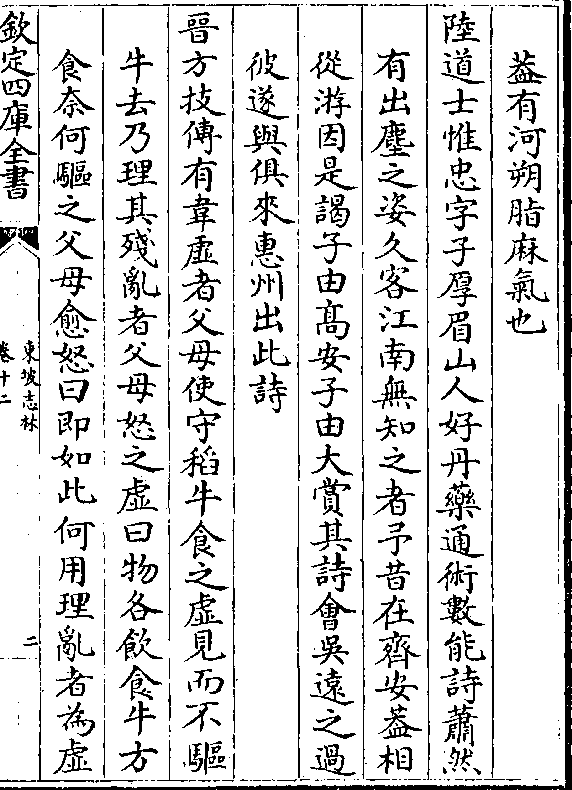 葢有河朔脂麻氣也
陸道士惟忠字子厚眉山人好丹藥通術數能詩蕭然
有出塵之姿久客江南無知之者予昔在齊安葢相
從游因是謁子由髙安子由大賞其詩會吳逺之過
彼遂與俱來惠州出此詩
晉方技傳有韋虛者父母使守稻牛食之虛見而不驅
牛去乃理其殘亂者父母怒之虛曰物各飲食牛方
食奈何驅之父母愈怒曰即如此何用理亂者為虛
欽定四庫全書
東坡志林
卷十二
二